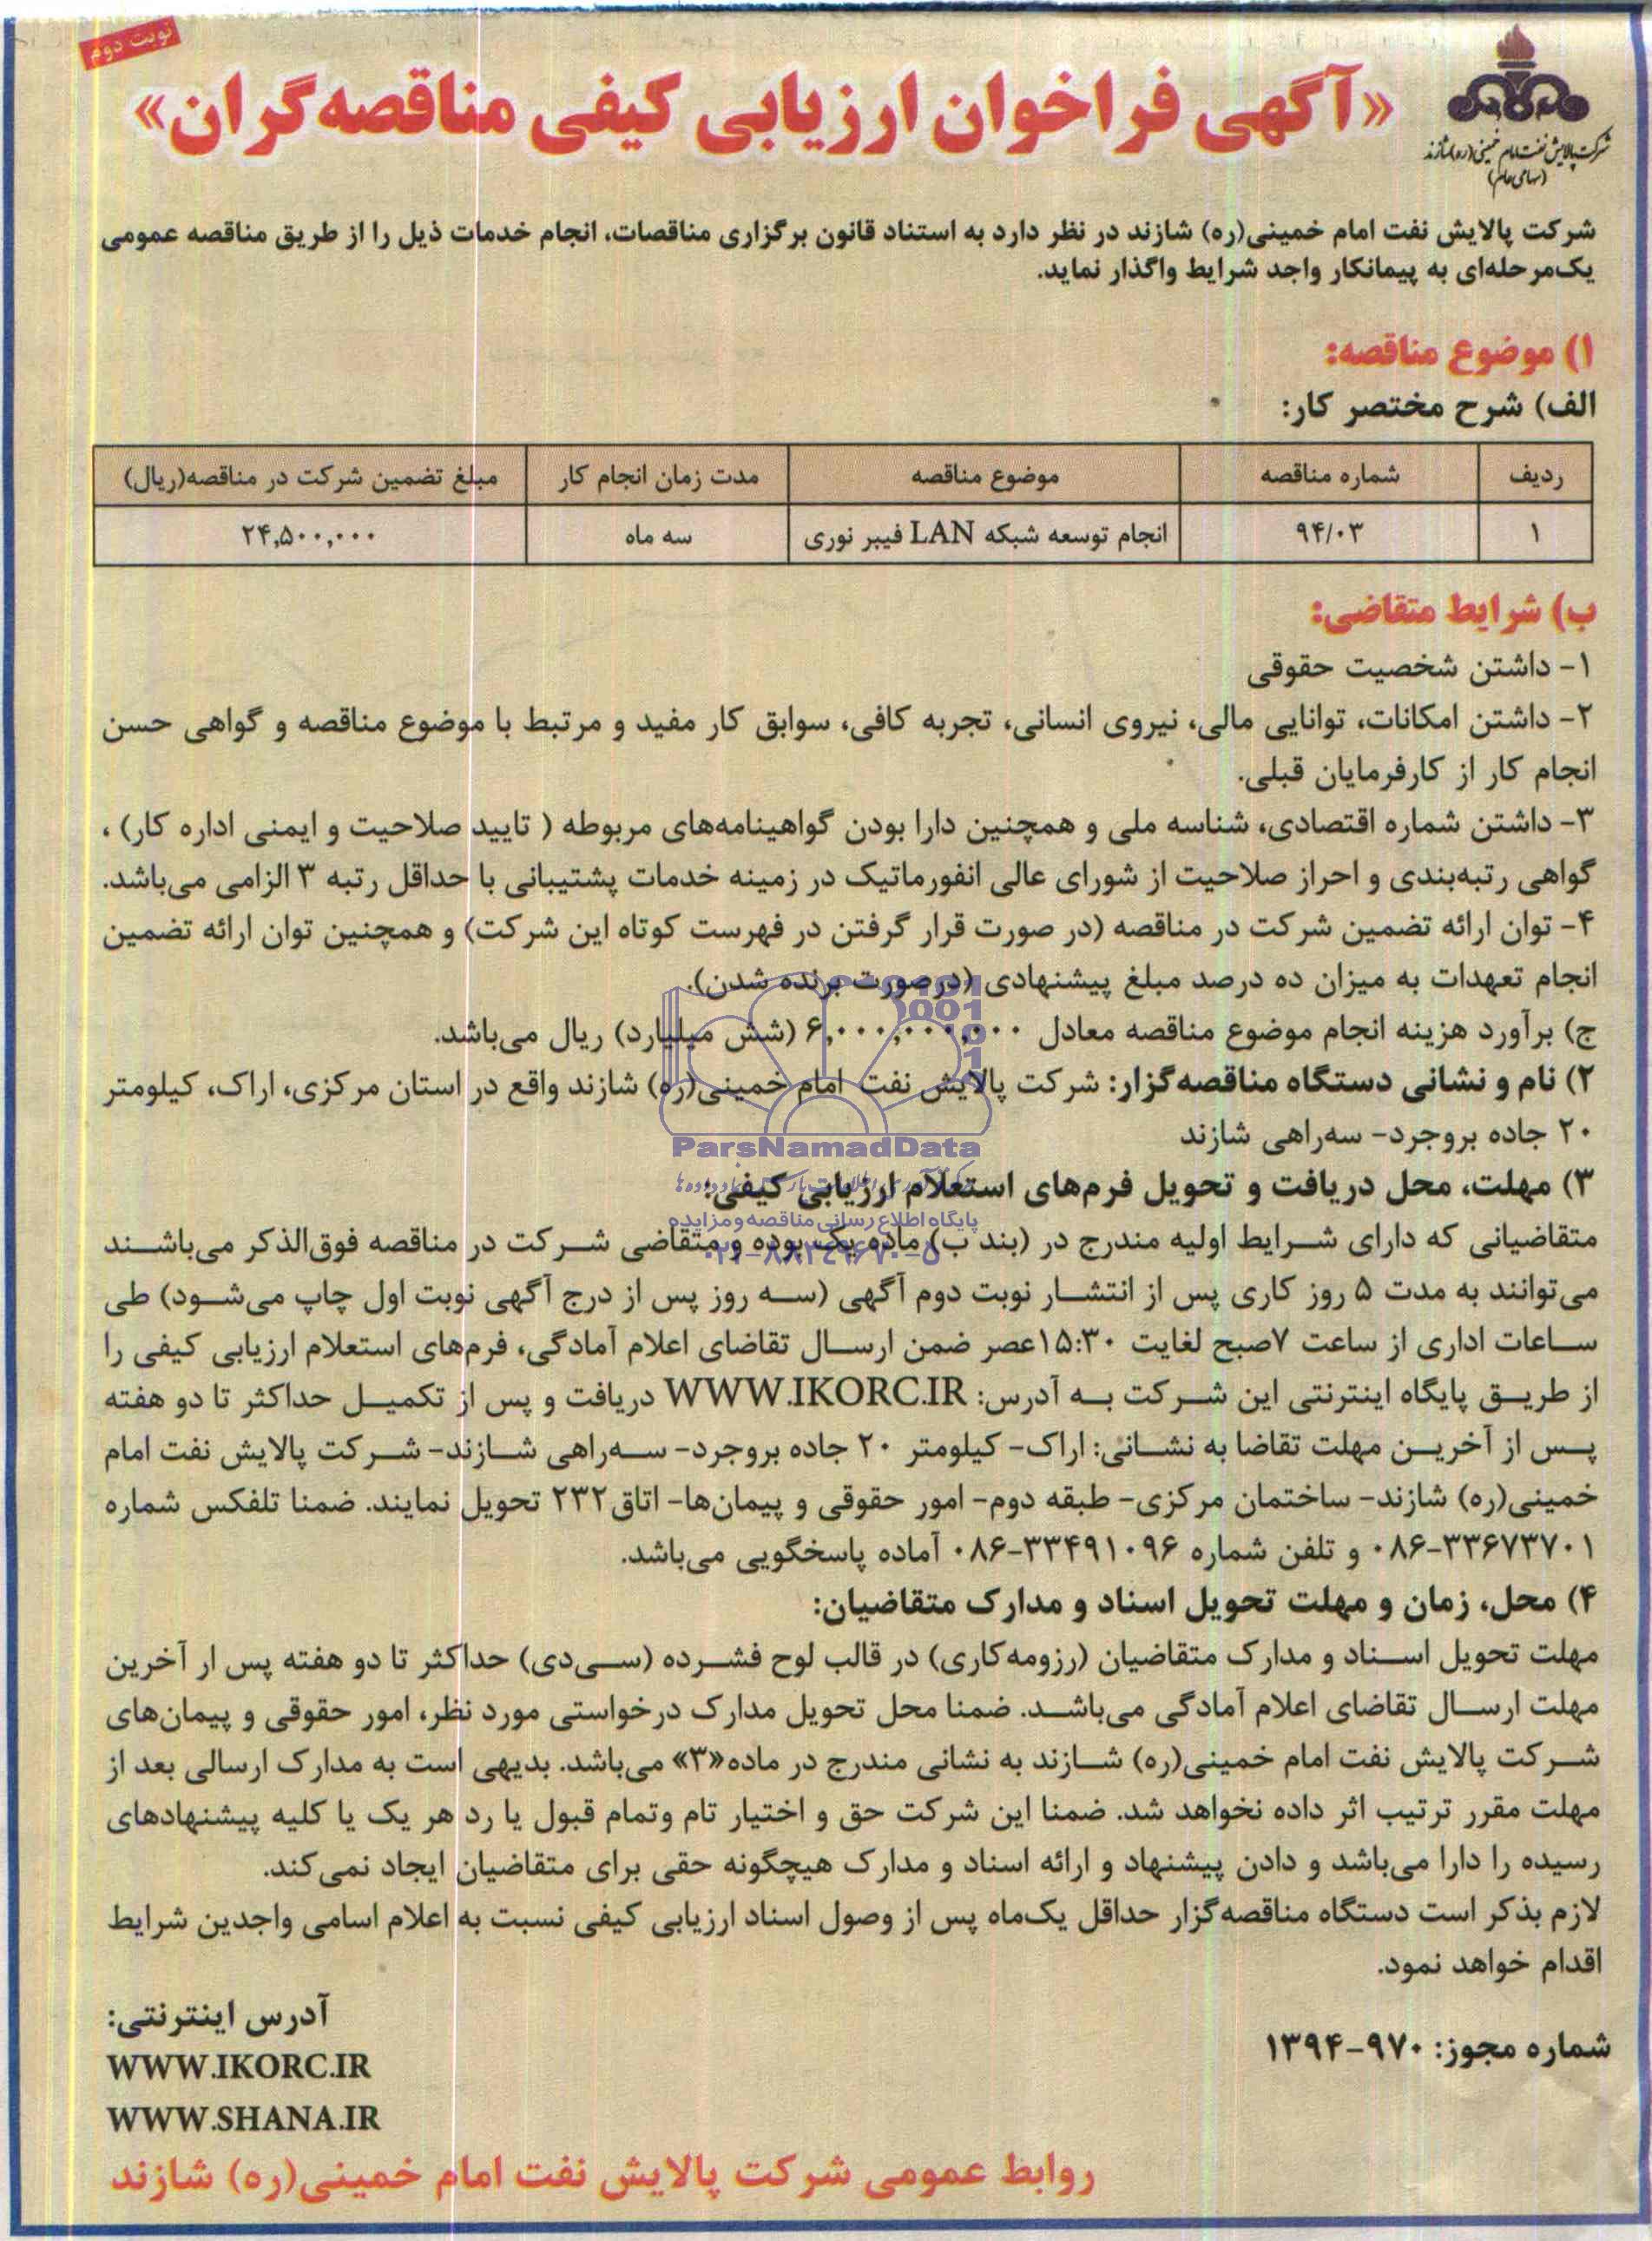 نوبت دوم
«آگهی فراخوان ارزیابی کیفی مناقصه‌گران»
شرکت پالایش نفت امام خمینی(ره) شازند
(سهامی عام)
شرکت پالایش نفت امام خمینی(ره) شازند در نظر دارد به استناد قانون برگزاری مناقصات، انجام خدمات ذیل را از طریق مناقصه عمومی
یک‌مرحله‌ای به پیمانکار واجد شرایط واگذار نماید.
۱) موضوع مناقصه:
الف) شرح مختصر کار:
ردیف شماره مناقصه موضوع مناقصه مدت زمان انجام کار مبلغ تضمین شرکت در مناقصه(ریال)
۱ ۹۴/۰۳ انجام توسعه شبکه LAN فیبر نوری سه ماه ۲۴,۵۰۰,۰۰۰
ب) شرایط متقاضی:
۱- داشتن شخصیت حقوقی
۲- داشتن امکانات، توانایی مالی، نیروی انسانی، تجربه کافی، سوابق کار مفید و مرتبط با موضوع مناقصه و گواهی حسن
انجام کار از کارفرمایان قبلی.
۳- داشتن شماره اقتصادی، شناسه ملی و همچنین دارا بودن گواهینامه‌های مربوطه ( تایید صلاحیت و ایمنی اداره کار) ،
گواهی رتبه‌بندی و احراز صلاحیت از شورای عالی انفورماتیک در زمینه خدمات پشتیبانی با حداقل رتبه ۳ الزامی می‌باشد.
۴- توان ارائه تضمین شرکت در مناقصه (در صورت قرار گرفتن در فهرست کوتاه این شرکت) و همچنین توان ارائه تضمین
انجام تعهدات به میزان ده درصد مبلغ پیشنهادی (درصورت برنده شدن).
ج) برآورد هزینه انجام موضوع مناقصه معادل ۶,۰۰۰,۰۰۰,۰۰۰ (شش میلیارد) ریال می‌باشد.
۲) نام و نشانی دستگاه مناقصه‌گزار: شرکت پالایش نفت امام خمینی(ره) شازند واقع در استان مرکزی، اراک، کیلومتر
۲۰ جاده بروجرد- سه‌راهی شازند
ParsNamadData
۳) مهلت، محل دریافت و تحویل فرم‌های استعلام ارزیابی کیفی:
پایگاه اطلاع رسانی مناقصه و مزایده
۰۲۱-۸۸۳۴۹۶۷۰-۵
متقاضیانی که دارای شرایط اولیه مندرج در (بند ب) ماده یک بوده و متقاضی شرکت در مناقصه فوق‌الذکر می‌باشند
می‌توانند به مدت ۵ روز کاری پس از انتشار نوبت دوم آگهی (سه روز پس از درج آگهی نوبت اول چاپ می‌شود) طی
ساعات اداری از ساعت ۷صبح لغایت ۱۵:۳۰عصر ضمن ارسال تقاضای اعلام آمادگی، فرم‌های استعلام ارزیابی کیفی را
از طریق پایگاه اینترنتی این شرکت به آدرس: WWW.IKORC.IR دریافت و پس از تکمیل حداکثر تا دو هفته
پس از آخرین مهلت تقاضا به نشانی: اراک- کیلومتر ۲۰ جاده بروجرد- سه‌راهی شازند- شرکت پالایش نفت امام
خمینی(ره) شازند- ساختمان مرکزی- طبقه دوم- امور حقوقی و پیمان‌ها- اتاق۲۳۲ تحویل نمایند. ضمنا تلفکس شماره
۰۸۶-۳۳۶۷۳۷۰۱ و تلفن شماره ۰۸۶-۳۳۴۹۱۰۹۶ آماده پاسخگویی می‌باشد.
۴) محل، زمان و مهلت تحویل اسناد و مدارک متقاضیان:
مهلت تحویل اسناد و مدارک متقاضیان (رزومه‌کاری) در قالب لوح فشرده (سی‌دی) حداکثر تا دو هفته پس ار آخرین
مهلت ارسال تقاضای اعلام آمادگی می‌باشد. ضمنا محل تحویل مدارک درخواستی مورد نظر، امور حقوقی و پیمان‌های
شرکت پالایش نفت امام خمینی(ره) شازند به نشانی مندرج در ماده«۳» می‌باشد. بدیهی است به مدارک ارسالی بعد از
مهلت مقرر ترتیب اثر داده نخواهد شد. ضمنا این شرکت حق و اختیار تام وتمام قبول یا رد هر یک یا کلیه پیشنهادهای
رسیده را دارا می‌باشد و دادن پیشنهاد و ارائه اسناد و مدارک هیچگونه حقی برای متقاضیان ایجاد نمی‌کند.
لازم بذکر است دستگاه مناقصه‌گزار حداقل یک‌ماه پس از وصول اسناد ارزیابی کیفی نسبت به اعلام اسامی واجدین شرایط
اقدام خواهد نمود.
شماره مجوز: ۹۷۰-۱۳۹۴
آدرس اینترنتی:
WWW.IKORC.IR
WWW.SHANA.IR
روابط عمومی شرکت پالایش نفت امام خمینی(ره) شازند